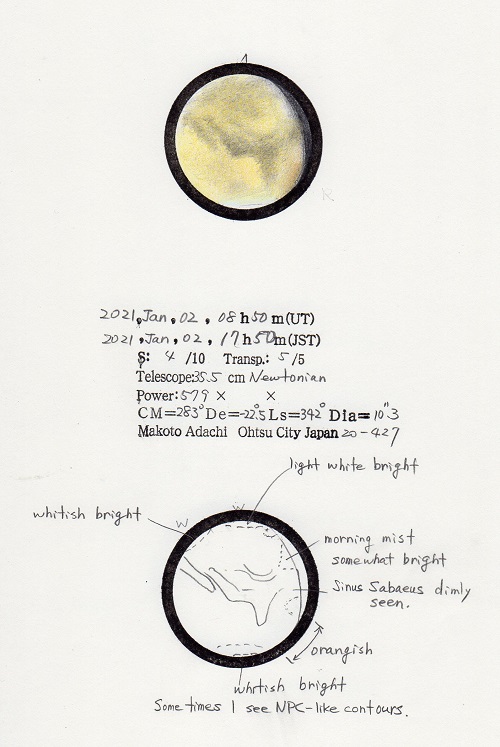 2021, Jan, 02, 08 h 50 m (UT)
2021, Jan, 02, 17 h 50 m (JST)
S: 4 /10 Transp.: 5 /5
Telescope: 35.5 cm Newtonian
Power: 579 × ×
CM=283° De=-22.5° Ls=342° Dia=10".3
Makoto Adachi Ohtsu City Japan 20-427
light white bright
whitish bright
W
W
morning mist
somewhat bright
Sinus Sabaeus dimly
seen.
orangish
whitish bright
Sometimes I see NPC-like contours.